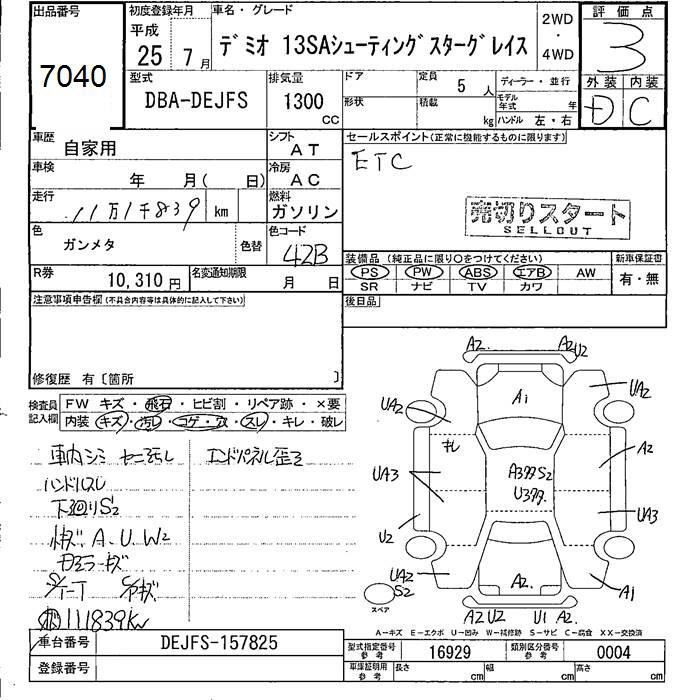 出品番号
7040
初度登録年月
平成
25年 7月
車名・グレード
デミオ 13SAシューティングスターグレイス
2WD
・
4WD
評価点
3
外装 内装
D C
型式
DBA-DEJFS
排気量
1300
CC
ドア
形状
定員
5人
積載
kg
ディーラー・並行
モデル年式 年
ハンドル 左・右
車歴
自家用
シフト
AT
車検
年 月( 日)
冷房
AC
走行
11万1千839 km
燃料
ガソリン
色
ガンメタ
色替
色コード
42B
R券
10,310円
名変通知期限
月 日
セールスポイント(正常に機能するものに限ります)
ETC
売切りスタート
SELLOUT
装備品 (純正品に限り○をつけてください)
新車保証書
PS PW ABS エアB AW
SR ナビ TV カワ
有・無
後日品
注意事項申告欄(不具合内容等は具体的に記入して下さい)
修復歴 有〔箇所 〕
検査員記入欄
FW キズ・飛石・ヒビ割・リペア跡・×要
内装 キズ・汚レ・コゲ・穴・スレ・キレ・破レ
車内シミ
エンドパネル歪ミ
ハンドルスレ
下廻りS2
A.U.W2
111839km
A2 A2 U2
A1
UA2
UA2
キレ
A2
UA3
A3 S2
U3
UA3
U2
UA2
S2
A2
A1
スペア
A2 U2 U1 A2
A-キズ E-エクボ U-凹み W-補修跡 S-サビ C-腐食 XX-交換済
車台番号
DEJFS-157825
登録番号
型式指定番号
参考
16929
類別区分番号
参考
0004
車庫証明用
参考
長さ cm
幅 cm
高さ cm